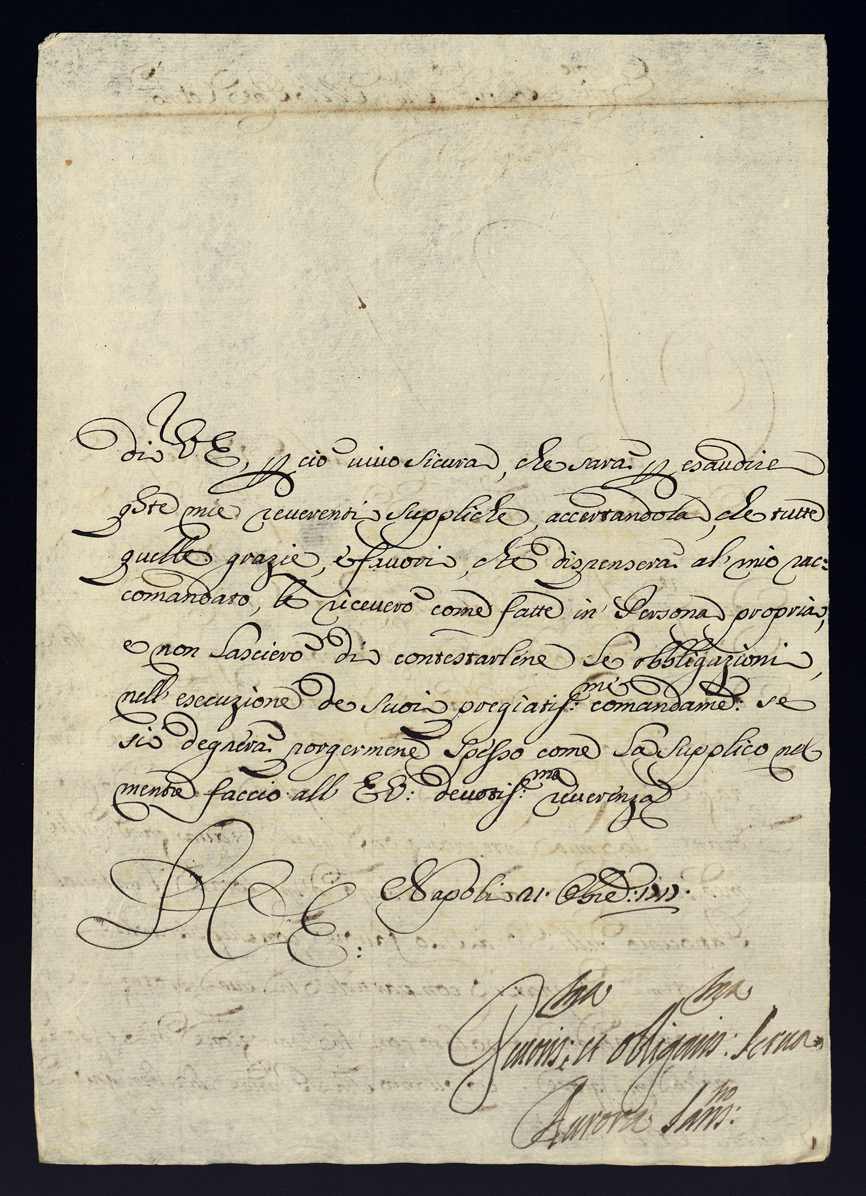 di V E, p ciò vivo sicura, che sarà p esaudire
qste mie reverenti suppliche, accertandola, che tutte
quelle grazie, e favori, che dispenserà al mio rac:
comandato, le riceverò come fatte in Persona propria,
e non lascierò di contestarlene le obbligazioni,
nell' esecuzione de suoi pregiatiss:mi comandame: se
si degnerà porgermene spesso come la supplico nel
mentre faccio all' E V: devotiss:ma reverenza
D V E: Napoli 21. Xbre:
Devotis:ma et obligatis:ma Serva
Aurora Sans:no